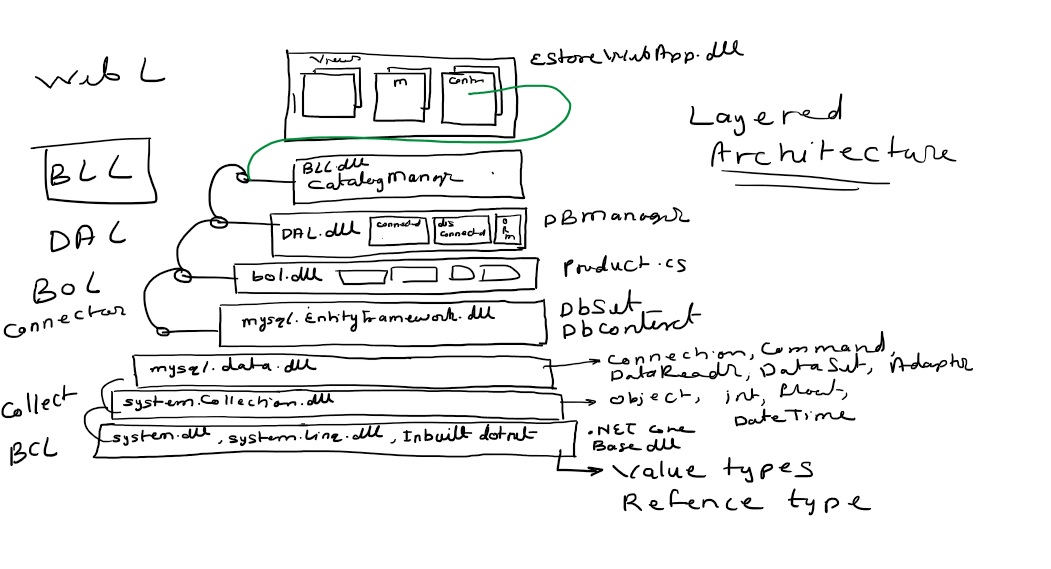 Web L
Views
m
Contr
EstoreWebApp.dll
Layered
Architecture
BLL
BLL.dll
CatalogManagr
DAL
DAL.dll
connected
dis
connected
O
R
m
DBmanager
BOL
bol.dll
Product.cs
Connector
mysql.EntityFramework.dll
DbSet
DbContext
mysql.data.dll
Connection, Command,
DataReadr, DataSet, Adaptor
Collect
system.Collection.dll
object, int, float,
DateTime
BCL
system.dll, system.Linq.dll, Inbuilt dotnet
.NET core
Base dll
Value types
Refence type